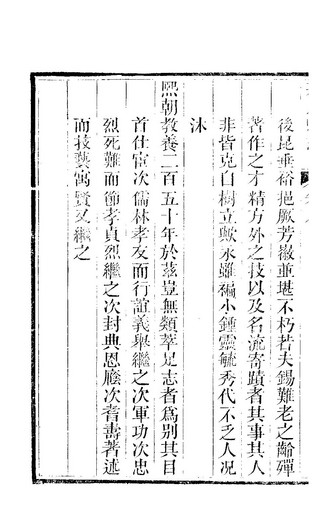 後昆垂裕挹厥芳徽並堪不朽若夫錫難老之齡殫
著作之才精方外之技以及名流寄蹟者其事其人
非皆克自樹立歟永雖褊小鍾靈毓秀代不乏人况
沐
熙朝教養二百五十年於茲豈無類萃是志者為別其目
首仕宦次儒林孝友而行誼義舉繼之次軍功次忠
烈死難而節孝貞烈繼之次封典恩廕次耆壽著述
而技藝寓賢又繼之